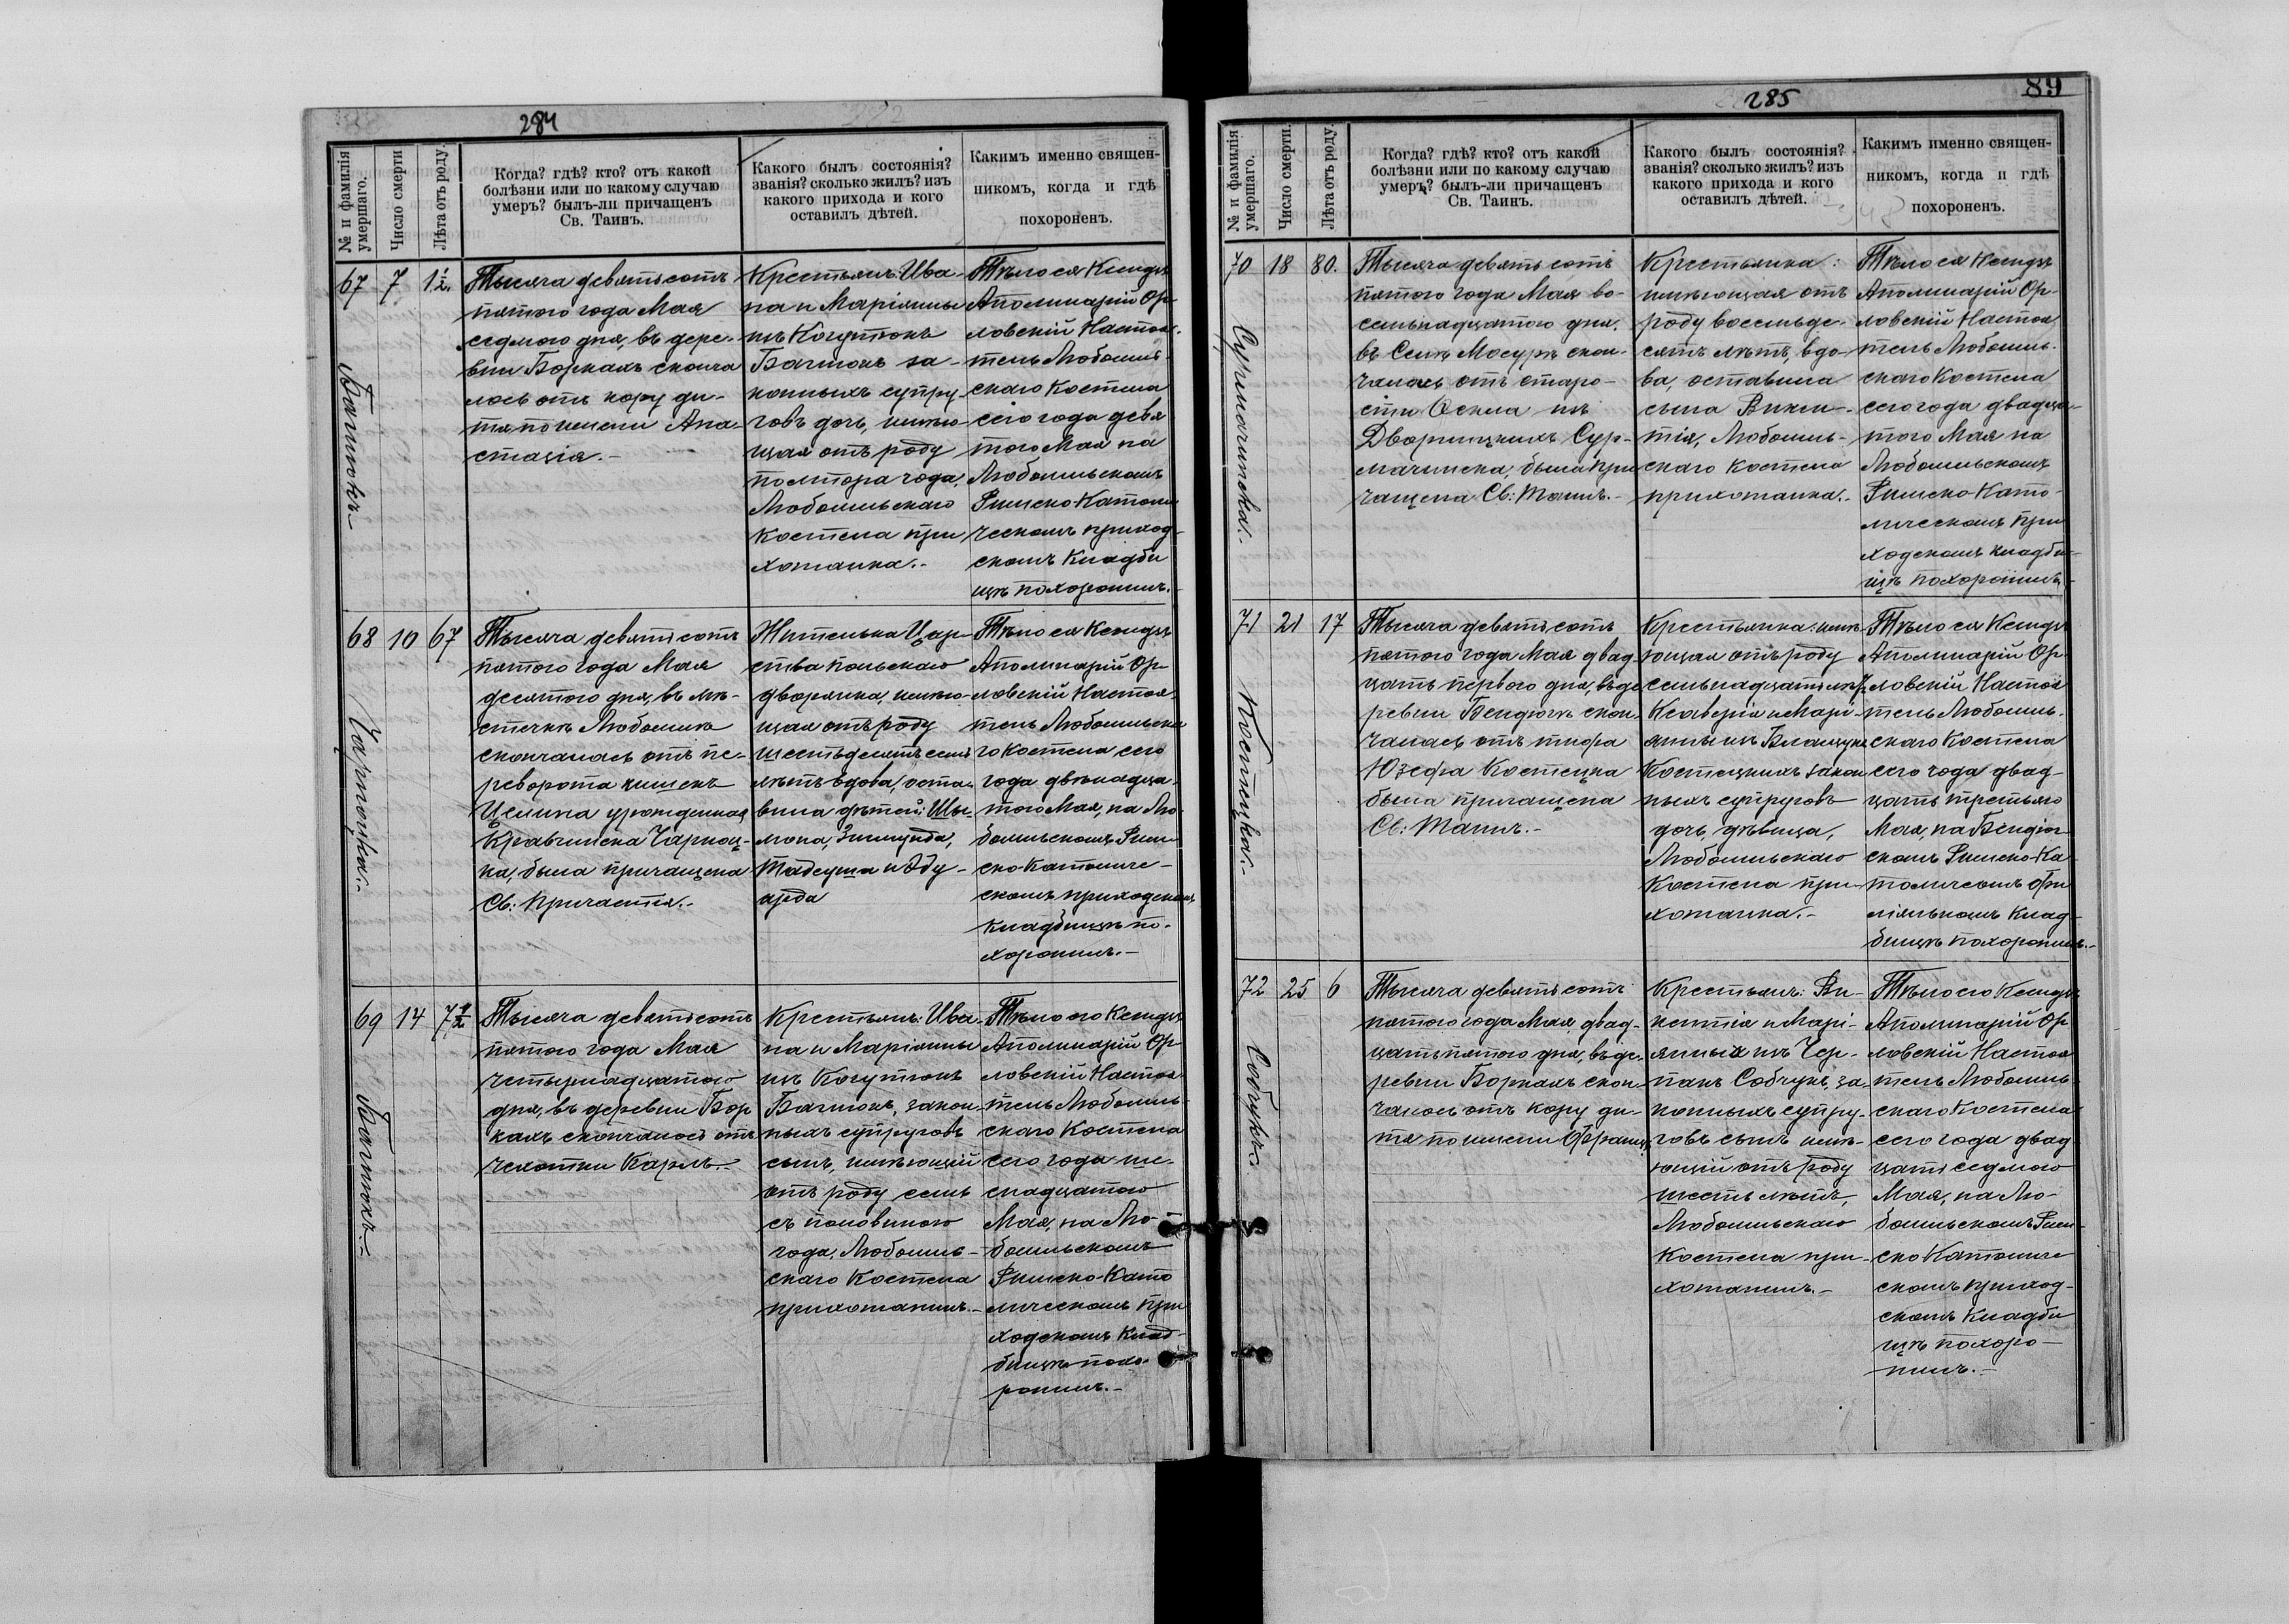 284
№ и фамилія умершаго.
Число смерти
Лѣта отъ роду.
Когда? гдѣ? кто? отъ какой
болѣзни или по какому случаю
умеръ? былъ-ли причащенъ
Св. Таинъ.
Какого былъ состоянія?
званія? сколько жилъ? изъ
какого прихода и кого
оставилъ дѣтей.
Какимъ именно священ-
никомъ, когда и гдѣ
похороненъ.
67
7
1½.
Бачтокъ
Тысяча девятьсотъ
пятого года Мая
седмого дня, въ дере-
вни Боркахъ сконча
лось отъ кору ди-
тя по имени Ана-
стасія.-
Крестьянъ: Ива-
на и Маріянны
изъ Когутокъ
Бачтокъ за-
конныхъ супру-
говъ дочь, имѣю-
щая отъ роду
полтора года,
Любомльскаго
Костела при
хожанка.-
Тѣло ея Ксендзъ
Аполинарій Ор-
ловскій Настоя-
тель Любомль-
скаго Костела
сего года девя
того Мая на
Любомльскомъ
Римско-Катали
ческомъ приход-
скомъ Кладби
щѣ похоронилъ.-
68
10
67
Чарноцка.-
Тысяча девятьсотъ
пятого года Мая
десятого дня, въ мѣ-
стечкѣ Любомлѣ
скончалась отъ пе-
реворота кишекъ
Целина урожденная
Кравчинска Чарноц-
ка, была причащена
Св: Причастія.-
Жителька Цар-
ства польскаго
дворянка, имѣю-
щая отъ роду
шестьдесятъ семь
лѣтъ вдова, оста-
вила дѣтей: Шы-
мона, Зигмунда,
Тадеуша и Эду-
арда
Тѣло ея Ксендзъ
Аполинарій Ор-
ловскій Настоя-
тель Любомльска
го Костела, сего
года двѣнадца-
того Мая, на Лю-
бомльскомъ Рим-
ско Католиче-
скомъ приходскомъ
Кладбищѣ по-
хоронилъ.-
69
14
7½
Бачтокъ.-
Тысяча девятьсотъ
пятого года Мая
четырнадцатого
дня, въ деревни Бор
кахъ скончался отъ
чахотки Карлъ.-
Крестьянъ: Ива-
на и Маріянны
изъ Когутокъ
Бачтокъ, закон-
ныхъ супруговъ
сынъ, имѣющій
отъ роду семь
съ половиною
года, Любомль-
скаго Костела
прихожанинъ.-
Тѣло его Ксендзъ
Аполинарій Ор-
ловскій Настоя-
тель Любомль-
скаго Костела
сего года ше-
снадцатого
Мая, на Лю-
бомльскомъ
Римско-Като
лическомъ при
ходскомъ Клад-
бищѣ похо-
ронилъ.-
285
89
№ и фамилія умершаго.
Число смерти.
Лѣта отъ роду.
Когда? гдѣ? кто? отъ какой
болѣзни или по какому случаю
умеръ? былъ-ли причащенъ
Св. Таинъ.
Какого былъ состоянія?
званія? сколько жилъ? изъ
какого прихода и кого
оставилъ дѣтей.
Какимъ именно священ-
никомъ, когда и гдѣ
похороненъ.
70
18
80.
Сурмачинска.-
Тысяча девятьсотъ
пятого года Мая во-
семьнадцатого дня,
въ Селѣ Мосурѣ скон-
чалась отъ старо-
сти Фекла изъ
Дворницкихъ Сур-
мачинска, была при
чащена Св: Таинъ.-
Крестьянка:
имѣющая отъ
роду восемьде-
сятъ лѣтъ, вдо-
ва, оставила
сына Викен-
тія, Любомль-
скаго Костела
прихожанка.-
Тѣло ея Ксендзъ
Аполинарій Ор-
ловскій Настоя
тель Любомль-
скаго Костела
сего года двадца-
того Мая на
Любомльскомъ
Римско-Като-
лическомъ при
ходскомъ кладби-
щѣ похоронилъ.-
71
21
17
Костецка.-
Тысяча девятьсотъ
пятого года Мая двад-
цать первого дня, въ де
ревни Бендюгѣ скон-
чалась отъ тифа
Юзефа Костецка
была причащена
Св: Таинъ.-
Крестьянка: имѣ-
ющая отъ роду
семьнадцать лѣтъ
Ксаверія и Марі-
анны изъ Влащукъ
Костецкихъ закон
ныхъ супруговъ
дочь, дѣвица,
Любомльскаго
Костела при-
хожанка.-
Тѣло ея Ксендзъ
Аполинарій Ор-
ловскій Настоя
тель Любомль-
скаго Костела
сего года двад-
цать третьяго
Мая, на Бендюг-
скомъ Римско-Ка
толическомъ фи
ліяльномъ Клад-
бищѣ похоронилъ.-
72
25
6
Собчукъ.-
Тысяча девятьсотъ
пятого года Мая, двад-
цать пятого дня, въ де-
ревни Боркахъ скон-
чалось отъ кору ди-
тя по имени Францъ
Крестьянъ: Ви-
кентія и Марі-
янны изъ Чер-
пакъ Собчукъ, за-
конныхъ супру-
говъ сынъ имѣ-
ющій отъ роду
шесть лѣтъ,
Любомльскаго
Костела при-
хожанинъ.-
Тѣло его Ксендзъ
Аполинарій Ор
ловскій Настоя
тель Любомль-
скаго Костела
сего года двад-
цать седмого
Мая, на Лю-
бомльскомъ Рим-
ско Католиче
скомъ приход-
скомъ Кладби
щѣ похоро-
нилъ.-